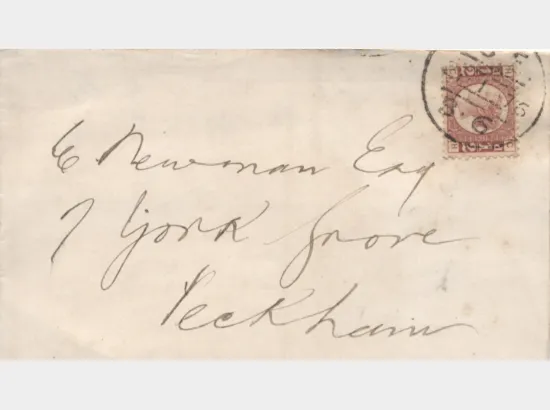 C Newman Esq
7 York Grove
Peckham